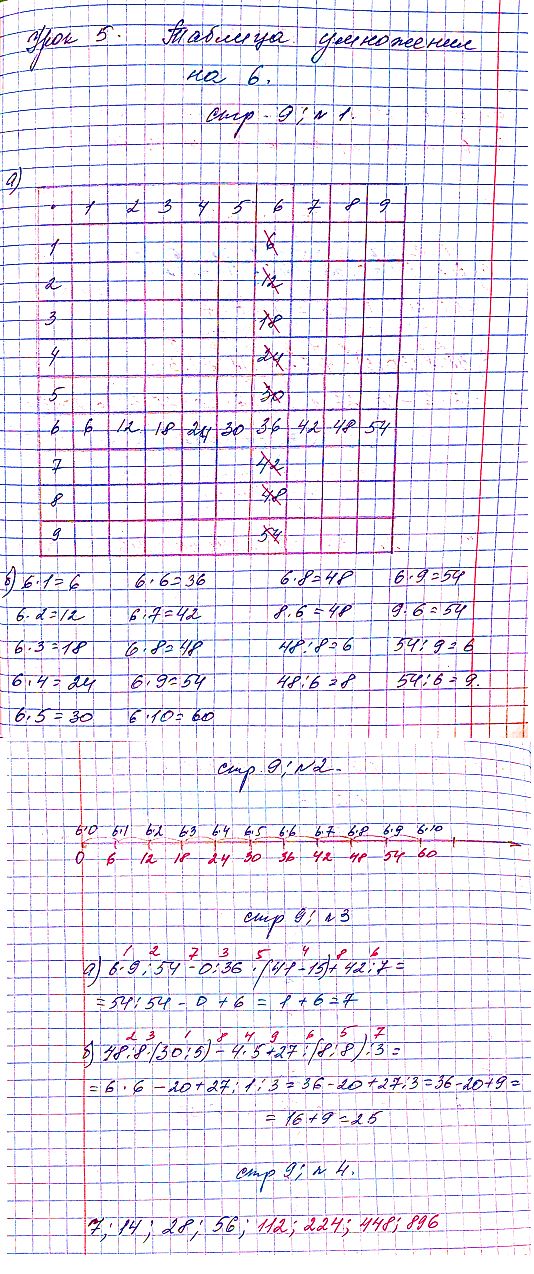 Урок 5. Таблица умножения
на 6.
стр. 9; № 1.
а)
· 1 2 3 4 5 6 7 8 9
1 6
2 12
3 18
4 24
5 30
6 6 12 18 24 30 36 42 48 54
7 42
8 48
9 54
б) 6·1=6 6·6=36 6·8=48 6·9=54
6·2=12 6·7=42 8·6=48 9·6=54
6·3=18 6·8=48 48:8=6 54:9=6
6·4=24 6·9=54 48:6=8 54:6=9.
6·5=30 6·10=60
стр. 9; №2.
6·0 6·1 6·2 6·3 6·4 6·5 6·6 6·7 6·8 6·9 6·10
0 6 12 18 24 30 36 42 48 54 60
стр 9; №3
1 2 7 3 5 4 8 6
а) 6·9:54-0:36·(41-15)+42:7=
=54:54-0+6=1+6=7
2 3 1 8 4 9 6 5 7
б) 48:8·(30:5)-4·5+27:(8:8):3=
=6·6-20+27:1:3=36-20+27:3=36-20+9=
=16+9=25
стр 9; № 4.
7; 14; 28; 56; 112; 224; 448; 896